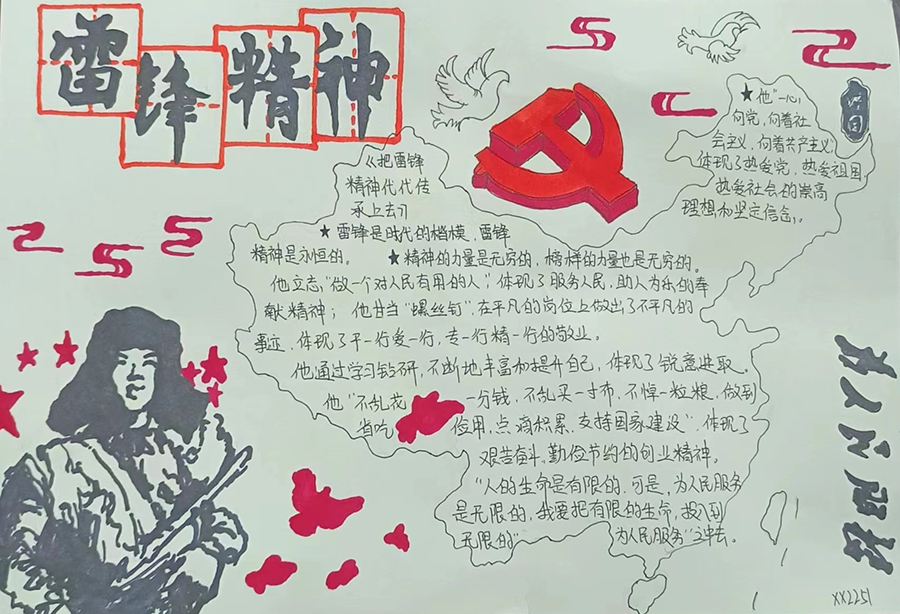 雷锋精神
★他"一心
向党,向着社
会主义,向着共产主义
体现了热爱党,热爱祖国
热爱社会的崇高
理想和坚定信念。
《把雷锋
精神代代传
承上去》
★ 雷锋是时代的楷模,雷锋
精神是永恒的。 ★精神的力量是无穷的,榜样的力量也是无穷的。
他立志"做一个对人民有用的人";体现了服务人民,助人为乐的奉
献精神;他甘当"螺丝钉",在平凡的岗位上做出了不平凡的
事迹,体现了干一行爱一行,专一行精一行的敬业。
他通过学习钻研,不断地丰富和提升自己,体现了锐意进取。
他"不乱花 一分钱,不乱买一寸布,不掉一粒粮,做到
省吃 俭用,点滴积累,支持国家建设",体现了
艰苦奋斗、勤俭节约的创业精神。
"人的生命是有限的,可是,为人民服务
是无限的,我要把有限的生命,投入到
无限的" 为人民服务"之中去。
为人民服务
XX2251